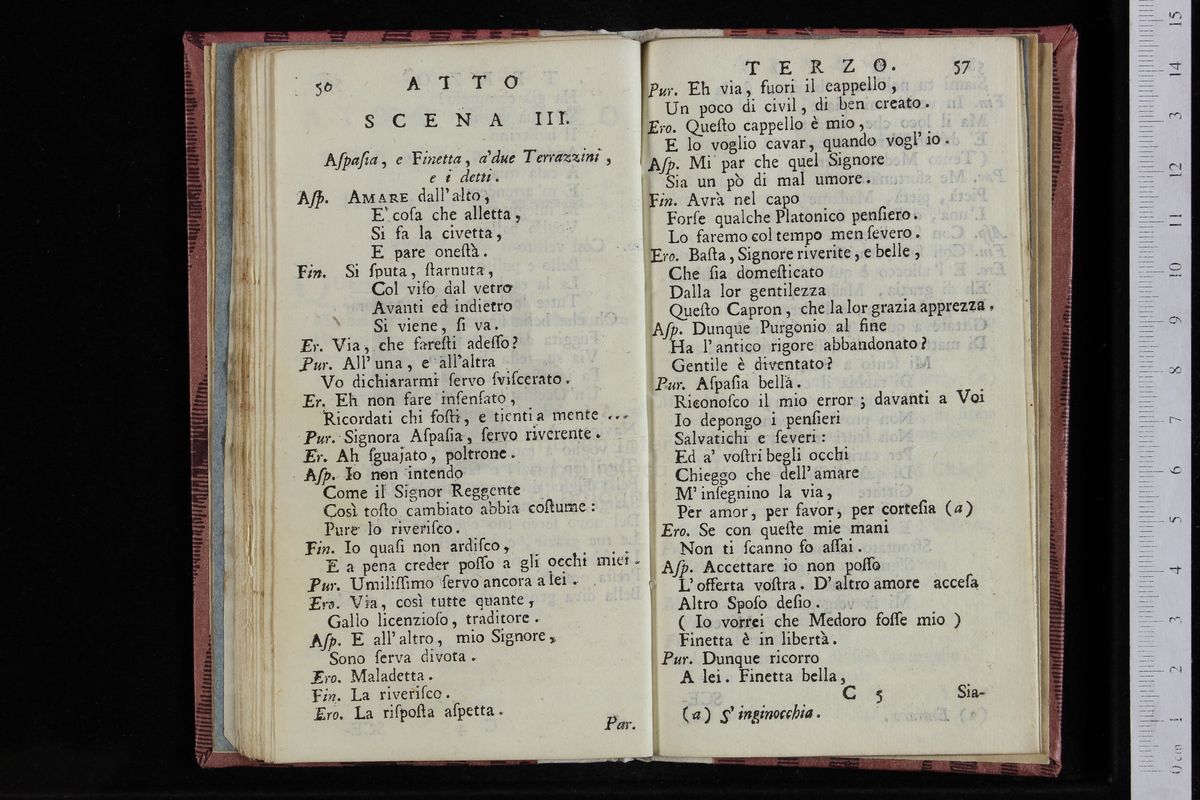 56 A T T O
S C E N A III.
Aſpaſia, e Finetta, a'due Terrazzini,
e i detti.
Aſp. AMARE dall' alto,
E' coſa che alletta,
Si fa la civetta,
E pare oneſtà.
Fin. Si ſputa, ſtarnuta,
Col viſo dal vetro
Avanti ed indietro
Si viene, ſi va.
Er. Via, che fareſti adeſſo?
Pur. All' una, e all'altra
Vo dichiararmi ſervo ſviſcerato.
Er. Eh non fare inſenſato,
Ricordati chi foſti, e tienti a mente ...
Pur. Signora Aſpaſia, ſervo riverente.
Er. Ah ſguajato, poltrone.
Aſp. Io non intendo
Come il Signor Reggente
Così toſto cambiato abbia coſtume:
Pure lo riveriſco.
Fin. Io quaſi non ardiſco,
E a pena creder poſſo a gli occhi miei.
Pur. Umiliſſimo ſervo ancora a lei.
Ero. Via, così tutte quante,
Gallo licenzioſo, traditore.
Aſp. E all'altro, mio Signore,
Sono ſerva divota.
Ero. Maladetta.
Fin. La riveriſco.
Ero. La riſpoſta aſpetta.
Par.
T E R Z O. 57
Pur. Eh via, fuori il eappello,
Un poco di civil, di ben creato.
Ero. Queſto cappello è mio,
E lo voglio cavar, quando vogl' io.
Aſp. Mi par che quel Signore
Sia un pò di mal umore.
Fin. Avrà nel capo
Forſe qualche Platonico penſiero.
Lo faremo col tempo men ſevero.
Ero. Baſta, Signore riverite, e belle,
Che ſia domeſticato
Dalla lor gentilezza
Queſto Capron, che la lor grazia apprezza.
Aſp. Dunque Purgonio al fine
Ha l'antico rigore abbandonato?
Gentile è diventato?
Pur. Aſpaſia bella.
Riconoſco il mio error; davanti a Voi
Io depongo i penſieri
Salvatichi e ſeveri:
Ed a' voſtri begli occhi
Chieggo che dell'amare
M' inſegnino la via,
Per amor, per favor, per corteſia (a)
Ero. Se con queſte mie mani
Non ti ſcanno fo aſſai.
Aſp. Accettare io non poſſo
L'offerta voſtra. D'altro amore acceſa
Altro Spoſo deſio.
( Io vorrei che Medoro foſſe mio )
Finetta è in libertà.
Pur. Dunque ricorro
A lei. Finetta bella,
C 5 Sia-
(a) S' inginocchia.